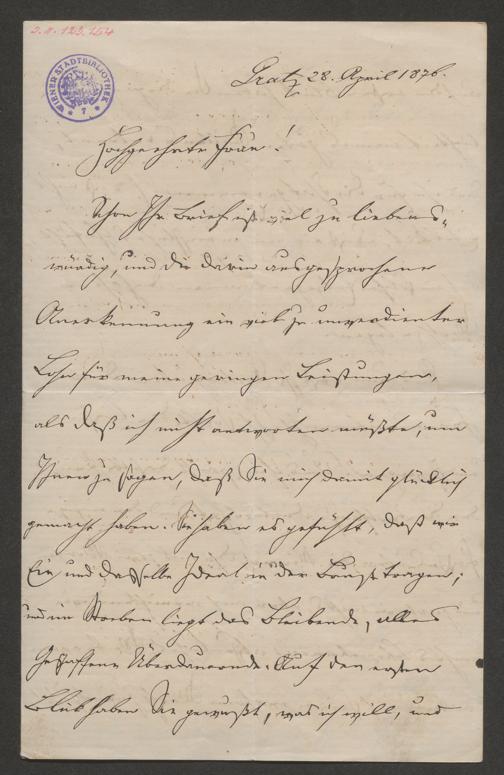 J.N. 123.154
WIENER STADTBIBLIOTHEK
Gratz 28. April 1876.
Hochgeehrte Frau!
Schon Ihr Brief ist viel zu liebens-
würdig, und die darin ausgesprochene
Anerkennung ein viel zu unverdienter
Lohn für meine geringen Leistungen,
als daß ich nicht antworten müßte, um
Ihnen zu sagen, daß Sie mich damit glücklich
gemacht haben. Sie haben es gefühlt, daß wir
Ein und dasselbe Ideal in der Brust tragen;
und im Streben liegt das Bleibende, alles
Geschaffene Überdauernde. Auf den ersten
Blick haben Sie gewußt, was ich will, und